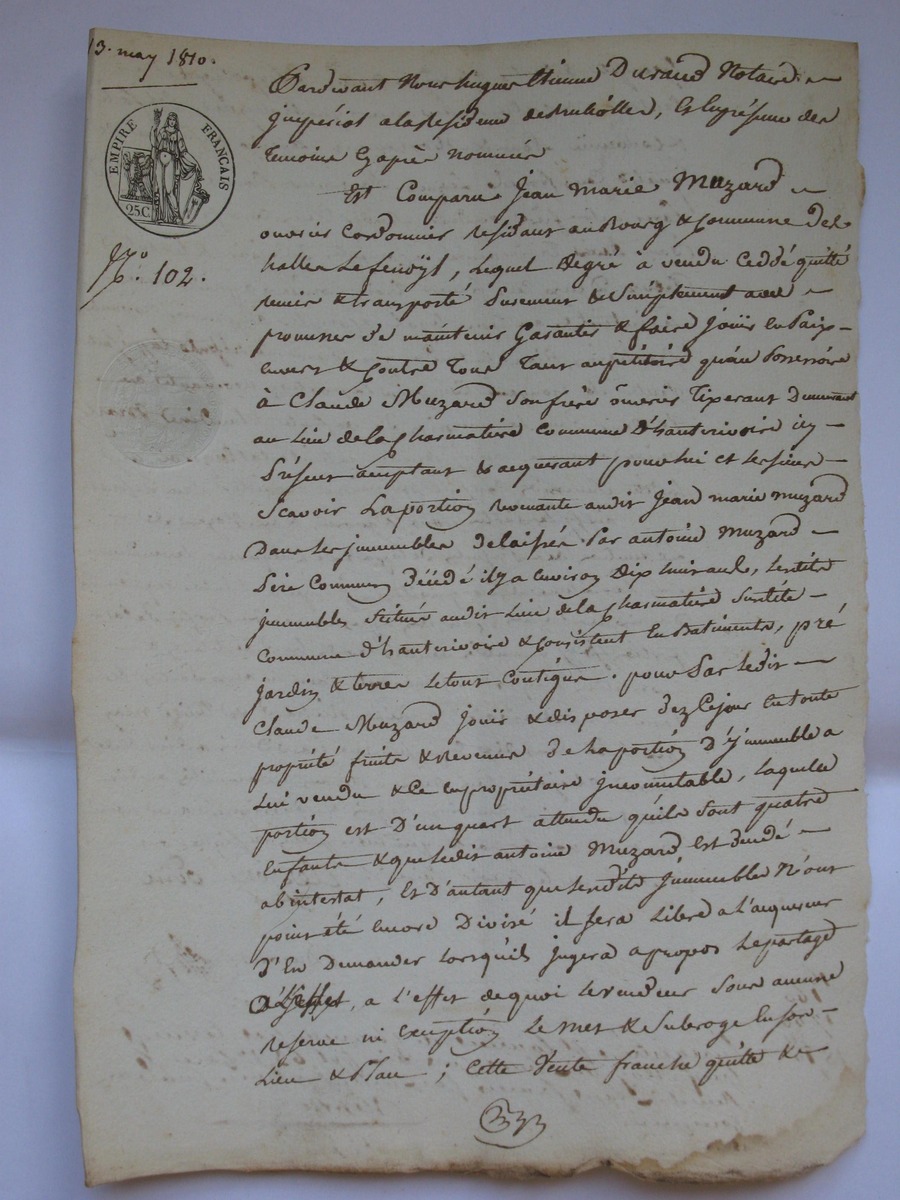 13. may 1810.
EMPIRE FRANÇAIS
25C
N.º 102.
Pardevant Nous hugues Etienne Durand Notaire
jmpérial a la residence de, Et En présence des
temoins Cy après nommés
Est Comparu Jean Marie Muzard
ouvrier Cordonnier residant au Bourg & Commune de
halles Le fenoÿl, Lequel de gré à vendu Ceddé quitté
remis & transporté purement & simplement avec
promesse de maintenir Garantir & faire jouir En Paix
Envers & Contre Tous Tant au pétitoire qu'au Possessoire
à Claude Muzard Son frère ouvrier Tisserant Demeurant
au Lieu de la Charmatière Commune D'hauterivoire icy
Présent acceptant & acquerant pour lui et les siens
Scavoir La portion revenante audit Jean marie muzard
Dans Les jmmeubles delaissés Par antoine Muzard
Père Commun décédé il y a Environ Dix huit ans, Lesdits
jmmeubles Scitués audit Lieu de la Charmatière susdite
Commune d'hauterivoire & Consistent En Batiments, pré
jardin & terres Le tout Contigus. pour Par Ledit
Claude Muzard jouir & disposer dez Ce jour En toute
propriété fruits & Revenus de La portion D'jmmeuble a
Lui vendu & Ce En propriétaire jncomutable, Laquelle
portion est D'un quart attendu qu'ils sont quatre
Enfants & que Ledit antoine Muzard Est décédé
abintestat, Et D'autant que Lesdits jmmeubles N'ont
point été Encore Divisé il Sera Libre a L'acquereur
D'En Demander Lorsqu'il jugera apropos Le partage
a L'effet de quoi Le vendeur Sans aucune
reserve ni Exception Le met & Subroge En Son
Lieu & Place ; Cette Vente franche quitte &